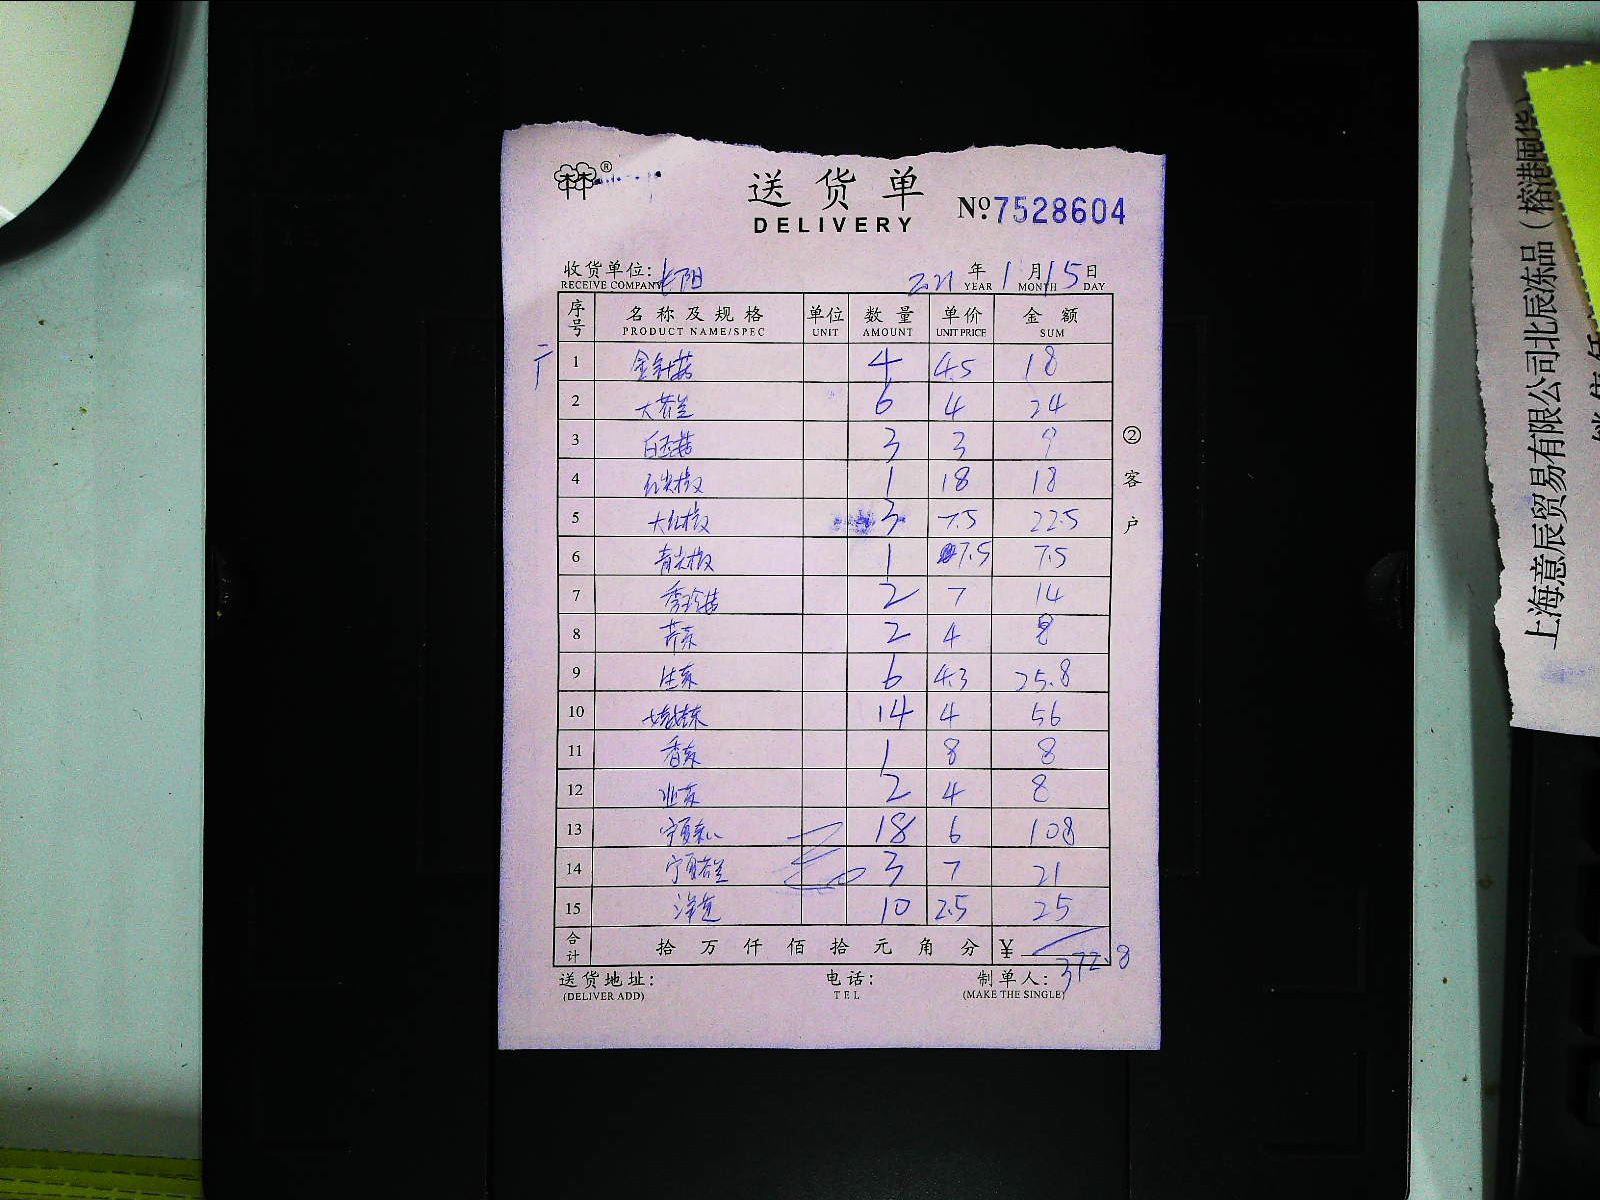 送货单
DELIVERY
№ 7528604
收货单位: 长阳 2021 年 1 月 15 日
RECEIVE COMPANY YEAR MONTH DAY
序号 名称及规格 单位 数量 单价 金额
PRODUCT NAME/SPEC UNIT AMOUNT UNIT PRICE SUM
1 金针菇 4 4.5 18
2 大芥兰 6 4 24
3 白玉菇 3 3 9
4 红尖椒 1 18 18
5 大红椒 3 7.5 22.5
6 青尖椒 1 7.5 7.5
7 秀珍菇 2 7 14
8 芹菜 2 4 8
9 生菜 6 4.3 25.8
10 娃娃菜 14 4 56
11 香菜 1 8 8
12 2 4 8
13 宁夏菜心 18 6 108
14 宁夏芥兰 3 7 21
15 洋芋 10 2.5 25
合计 拾 万 仟 佰 拾 元 角 分 ¥ 372.8
送货地址: 电话: 制单人:
(DELIVER ADD) TEL (MAKE THE SINGLE)
② 客户
上海意辰贸易有限公司北辰冻品（榕港囤货）